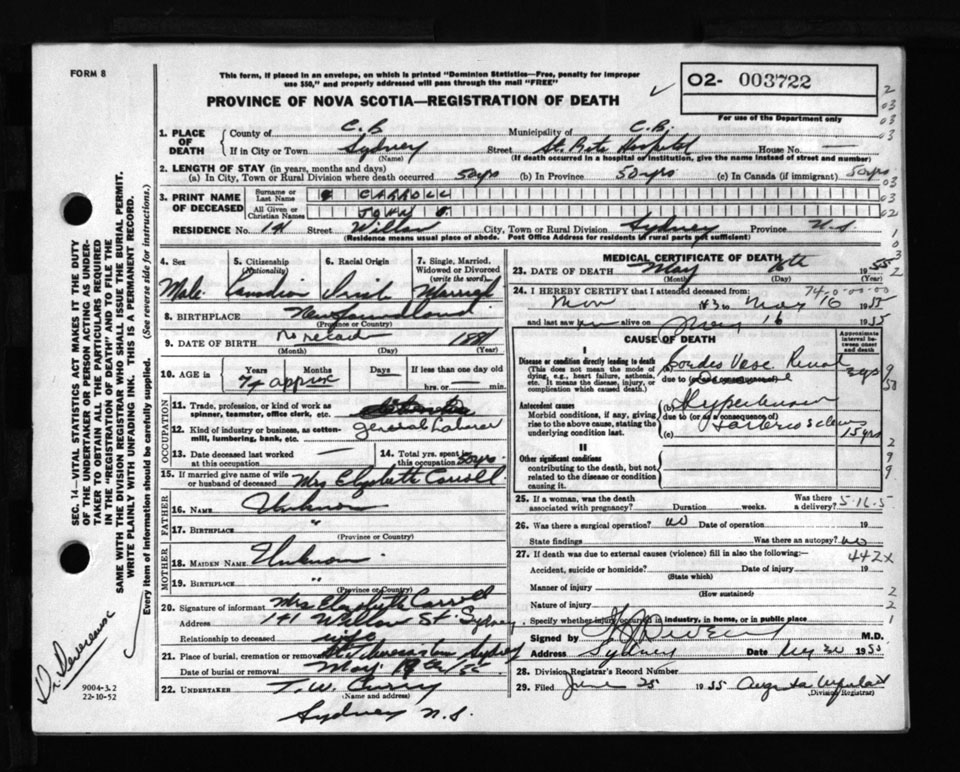 FORM 8
This form, if placed in an envelope, on which is printed "Dominion Statistics—Free, penalty for improper
use $50," and properly addressed will pass through the mail "FREE"
PROVINCE OF NOVA SCOTIA—REGISTRATION OF DEATH
O2- 003722
For use of the Department only
1. PLACE OF DEATH
County of C.B. Municipality of C.B.
If in City or Town Sydney Street St. Rita Hospital House No. —
(Name) (If death occurred in a hospital or institution, give the name instead of street and number)
2. LENGTH OF STAY (in years, months and days)
(a) In City, Town or Rural Division where death occurred 50yrs (b) In Province 50 yrs (c) In Canada (if immigrant) 50yrs
3. PRINT NAME OF DECEASED
Surname or Last Name CARROLL
All Given or Christian Names JOHN
RESIDENCE No. 141 Street Willow City, Town or Rural Division Sydney Province N.S.
(Residence means usual place of abode. Post Office Address for residents in rural parts not sufficient)
4. Sex Male
5. Citizenship (Nationality) Canadian
6. Racial Origin Irish
7. Single, Married, Widowed or Divorced (write the word) Married
8. BIRTHPLACE Newfoundland
(Province or Country)
9. DATE OF BIRTH No record 1881
(Month) (Day) (Year)
10. AGE is Years 74 approx Months Days — If less than one day
hrs. or — min.
OCCUPATION
11. Trade, profession, or kind of work as spinner, teamster, office clerk, etc.
12. Kind of industry or business, as cotton-mill, lumbering, bank, etc. general Laborer
13. Date deceased last worked at this occupation —
14. Total yrs. spent in this occupation 50yrs.
15. If married give name of wife or husband of deceased Mrs Elizabeth Carroll
FATHER
16. Name Unknown
17. Birthplace "
(Province or Country)
MOTHER
18. MAIDEN NAME Unknown
19. Birthplace "
(Province or Country)
20. Signature of informant Mrs Elizabeth Carroll
Address 141 Willow St. Sydney
Relationship to deceased wife
21. Place of burial, cremation or removal Sydney
Date of burial or removal May 19th/55
22. UNDERTAKER T.W. Curry
(Name and address)
Sydney N.S.
MEDICAL CERTIFICATE OF DEATH
23. DATE OF DEATH May 16th 1955
(Month) (Day) (Year)
24. I HEREBY CERTIFY that I attended deceased from:
to May 16 1955
and last saw him alive on May 16 1955
CAUSE OF DEATH
Approximate interval between onset and death
I
Disease or condition directly leading to death
(This does not mean the mode of dying, e.g., heart failure, asthenia, etc. It means the disease, injury, or complication which caused death.)
(a) Cardio Vasc. Renal
due to (or as a consequence of)
3 yrs
Antecedent causes
Morbid conditions, if any, giving rise to the above cause, stating the underlying condition last.
(b) Hypertension
due to (or as a consequence of)
(c)
15 yrs
II
Other significant conditions
contributing to the death, but not related to the disease or condition causing it.
25. If a woman, was the death associated with pregnancy? Duration weeks. Was there a delivery?
26. Was there a surgical operation? no Date of operation 19
State findings Was there an autopsy? no
27. If death was due to external causes (violence) fill in also the following:—
442X
Accident, suicide or homicide? Date of injury 19
(State which)
Manner of injury
(How sustained)
Nature of injury
Specify whether injury occurred in industry, in home, or in public place
Signed by M.D.
Address Sydney Date May 30 1955
28. Division Registrar's Record Number
29. Filed June 25 1955
(Division Registrar)
SEC. 14—VITAL STATISTICS ACT MAKES IT THE DUTY
OF THE UNDERTAKER OR PERSON ACTING AS UNDER-
TAKER TO OBTAIN ALL THE PARTICULARS REQUIRED
IN THE "REGISTRATION OF DEATH" AND TO FILE THE
SAME WITH THE DIVISION REGISTRAR WHO SHALL ISSUE THE BURIAL PERMIT.
WRITE PLAINLY WITH UNFADING INK. THIS IS A PERMANENT RECORD.
Every item of information should be carefully supplied. (See reverse side for instructions.)
9004-3.2
22-10-52